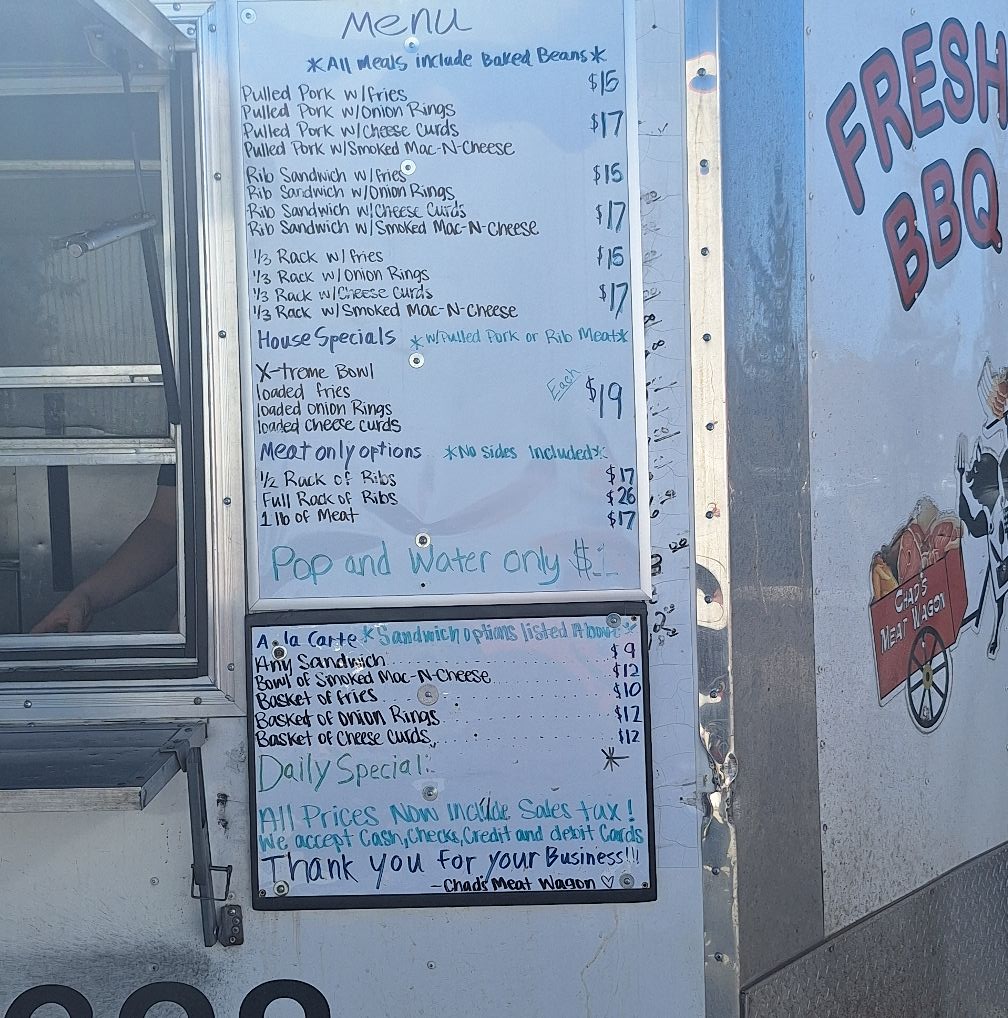 Menu
*All Meals include Baked Beans*
Pulled Pork w/fries $15
Pulled Pork w/Onion Rings
Pulled Pork w/Cheese Curds $17
Pulled Pork w/Smoked Mac-N-Cheese
Rib Sandwich w/fries $15
Rib Sandwich w/Onion Rings
Rib Sandwich w/Cheese Curds $17
Rib Sandwich w/Smoked Mac-N-Cheese
1/3 Rack w/fries $15
1/3 Rack w/Onion Rings
1/3 Rack w/Cheese Curds $17
1/3 Rack w/Smoked Mac-N-Cheese
House Specials *w/Pulled Pork or Rib Meat*
X-treme Bowl
loaded fries Each $19
loaded Onion Rings
loaded cheese curds
Meat only options *No sides Included*
1/2 Rack of Ribs $17
Full Rack of Ribs $26
1 lb of Meat $17
Pop and Water only $1
A la Carte *Sandwich options listed Above*
Any Sandwich $9
Bowl of Smoked Mac-N-Cheese $12
Basket of fries $10
Basket of Onion Rings $12
Basket of Cheese Curds $12
Daily Special: *
All Prices Now Include Sales tax!
We accept Cash, Checks, Credit and debit Cards
Thank you for your Business!!!
-Chad's Meat Wagon ♡
FRESH
BBQ
CHAD'S
MEAT WAGON